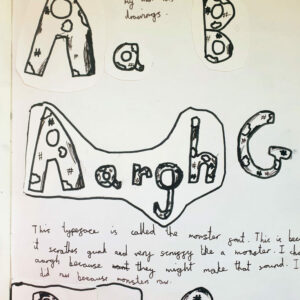 my
drawings.
A a B
Aargh G
This typeface is called the monster font. This is bec
it and very scruffy like a monster. I cho
aargh because they might make that sound. I
did raw because monsters raw.